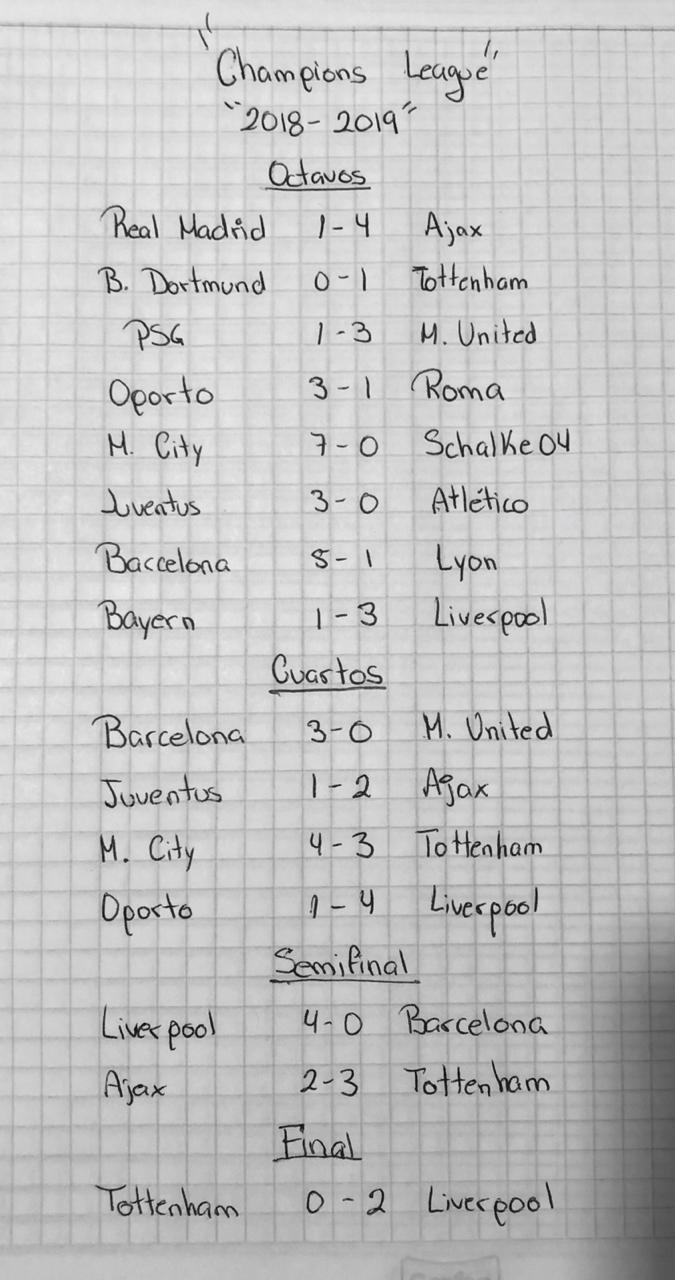 "Champions League"
"2018-2019"
Octavos
Real Madrid 1-4 Ajax
B. Dortmund 0-1 Tottenham
PSG 1-3 M. United
Oporto 3-1 Roma
M. City 7-0 Schalke 04
Juventus 3-0 Atlético
Barcelona 5-1 Lyon
Bayern 1-3 Liverpool
Cuartos
Barcelona 3-0 M. United
Juventus 1-2 Ajax
M. City 4-3 Tottenham
Oporto 1-4 Liverpool
Semifinal
Liverpool 4-0 Barcelona
Ajax 2-3 Tottenham
Final
Tottenham 0-2 Liverpool